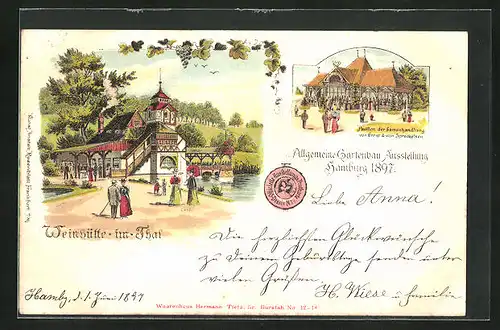 Pavillon der Samenhandlung
von Ernst & von Spreckelsen
Allgemeine Gartenbau Ausstellung
Hamburg 1897.
Weinhütte-im-Thal
Liebe Anna!
Die herzlichsten Glückwünsche
zu deinem Geburtstage senden unter
vielen Grüßen
H. Wiese u Familie
Hambg, d. 1. Juni 1897
Waarenhaus Hermann Tietz, Gr. Burstah No. 12-14